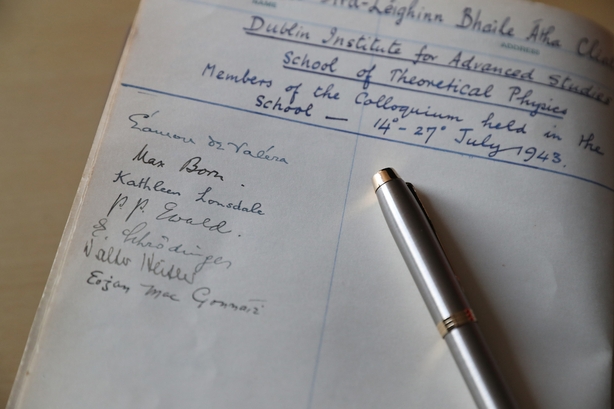 Ard-Léighinn Bhaile Átha Cliath
Dublin Institute for Advanced Studies
School of Theoretical Physics
Members of the Colloquium held in the
School — 14° - 27° July 1943.
Éamon de Valéra
Max Born.
Kathleen Lonsdale
P. P. Ewald.
E Schrödinger
Walter Heitler
Eoġan Mac